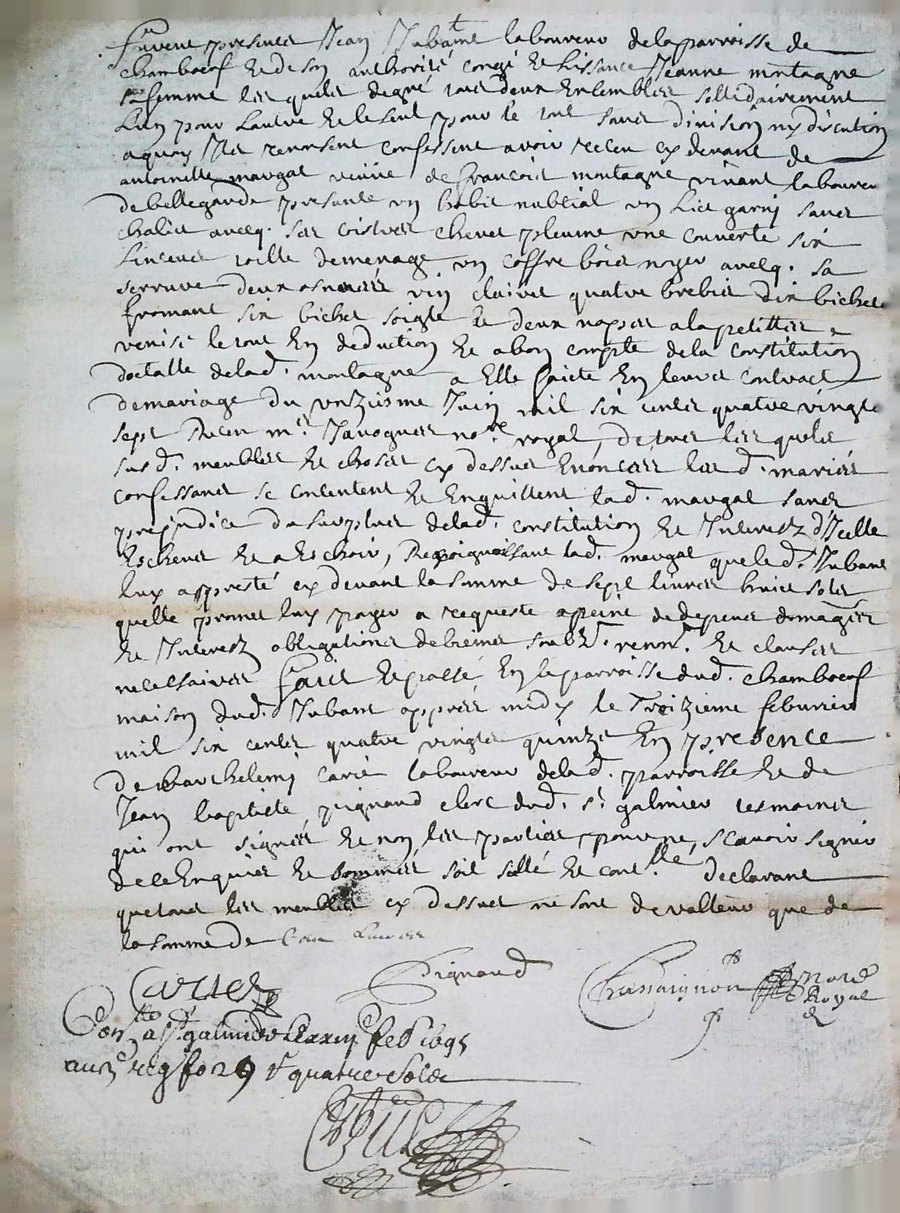 furent presents Jean Jubant laboureur de la parroisse de
chambœuf & de son authorité congé & lissance Jeanne montagne
sa femme lesquels de gré tous deux Ensembles sollidairement
L'un pour Lautre & le seul pour le tout sans division ny discution
a quoy Ils renonsent confessent avoir receu cy devant de
antoinette maugal veuve de francois montagne vivant laboureur
de bellegarde presente un habit nubtial un Lict garny sans
chalict avecq. ses coistres chevet pleume une couverte six
Linceuls toille de menage un coffre bois noyer avecq. sa
serrure deux asnées vin clairet quatre brebis dix bichets
fromant six bichet soigle & deux nappes a la petitte
venise le tout En deduction & a bon compte de la constitution
dotalle de lad. montagne a Elle faicte En leur contract
de mariage du unzieme Juin mil six cents quatre vingts
sept Receu Mr. no.re royal, de tous lesquels
susd. meubles & choses cy dessus Enoncees les d. mariés
confessants se contentent & Enquittent lad. maugal sans
prejudice du surplus de lad. constitution & Interest d'Icelle
Escheus & a Eschoir, Recoignoissant lad. maugal que led. Jubant
luy a presté cy devant la somme de sept livres huict sols
quelle promet luy payer a requeste a peine de depens domages
& Interest obligations de biens soubz. renon. & clauses
necessaires faict & passé En la parroisse dud. chambœuf
maison dud. Jubant appres midy le Treizieme feburier
mil six cents quatre vingts quinze En presence
de barthelemy carié laboureur de lad. parroisse & de
Jean baptiste pignaud clerc dud. st. galmier tesmoins
qui ont signés & non les parties pour ne scavoir signer
de ce Enquis & sommés soit sellé & con.lle Declarant
que tous les meubles cy dessus ne sont de valleur que de
la somme de cent Livres
Carier Pignaud Chassaignon no.re Royal
Con.lle a st. galmier le feb. 1695
au reg fo 29 r quatre solz